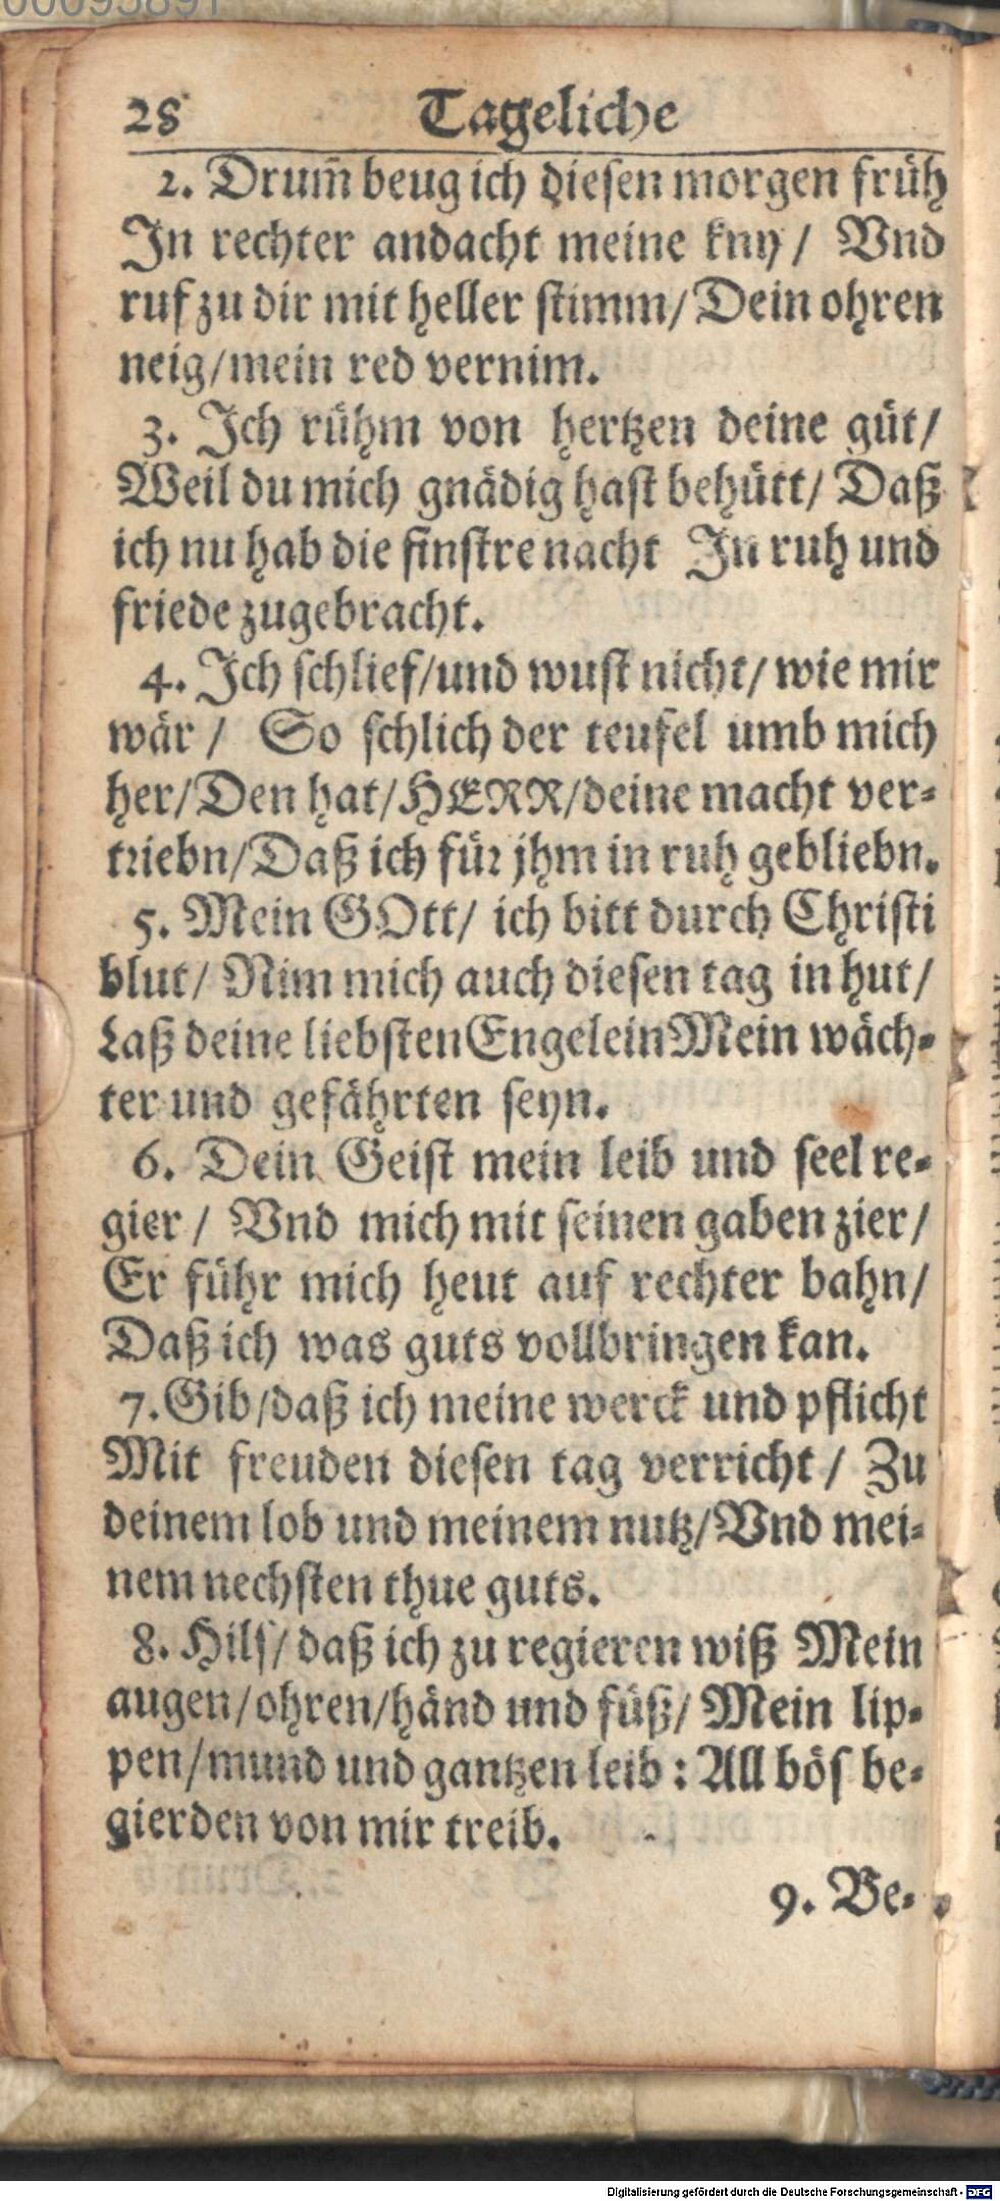 00095891
28 Tageliche
2. Drum̃ beug ich diesen morgen früh
In rechter andacht meine kny / Vnd
ruf zu dir mit heller stimm/ Dein ohren
neig/mein red vernim.
3. Ich rühm von hertzen deine güt/
Weil du mich gnädig hast behütt/ Daß
ich nu hab die finstre nacht In ruh und
friede zugebracht.
4. Ich schlief/und wust nicht/ wie mir
wär / So schlich der teufel umb mich
her/Den hat/HERR/deine macht ver-
triebn/Daß ich für jhm in ruh gebliebn.
5. Mein GOtt/ ich bitt durch Christi
blut/ Nim mich auch diesen tag in hut/
Laß deine liebsten Engelein Mein wäch-
ter und gefährten seyn.
6. Dein Geist mein leib und seel re-
gier / Vnd mich mit seinen gaben zier/
Er führ mich heut auf rechter bahn/
Daß ich was guts vollbringen kan.
7. Gib/daß ich meine werck und pflicht
Mit freuden diesen tag verricht / Zu
deinem lob und meinem nutz/Vnd mei-
nem nechsten thue guts.
8. Hilf/ daß ich zu regieren wiß Mein
augen/ohren/händ und füß/ Mein lip-
pen/mund und gantzen leib : All bös be-
gierden von mir treib.
9. Be-
Digitalisierung gefördert durch die Deutsche Forschungsgemeinschaft - DFG